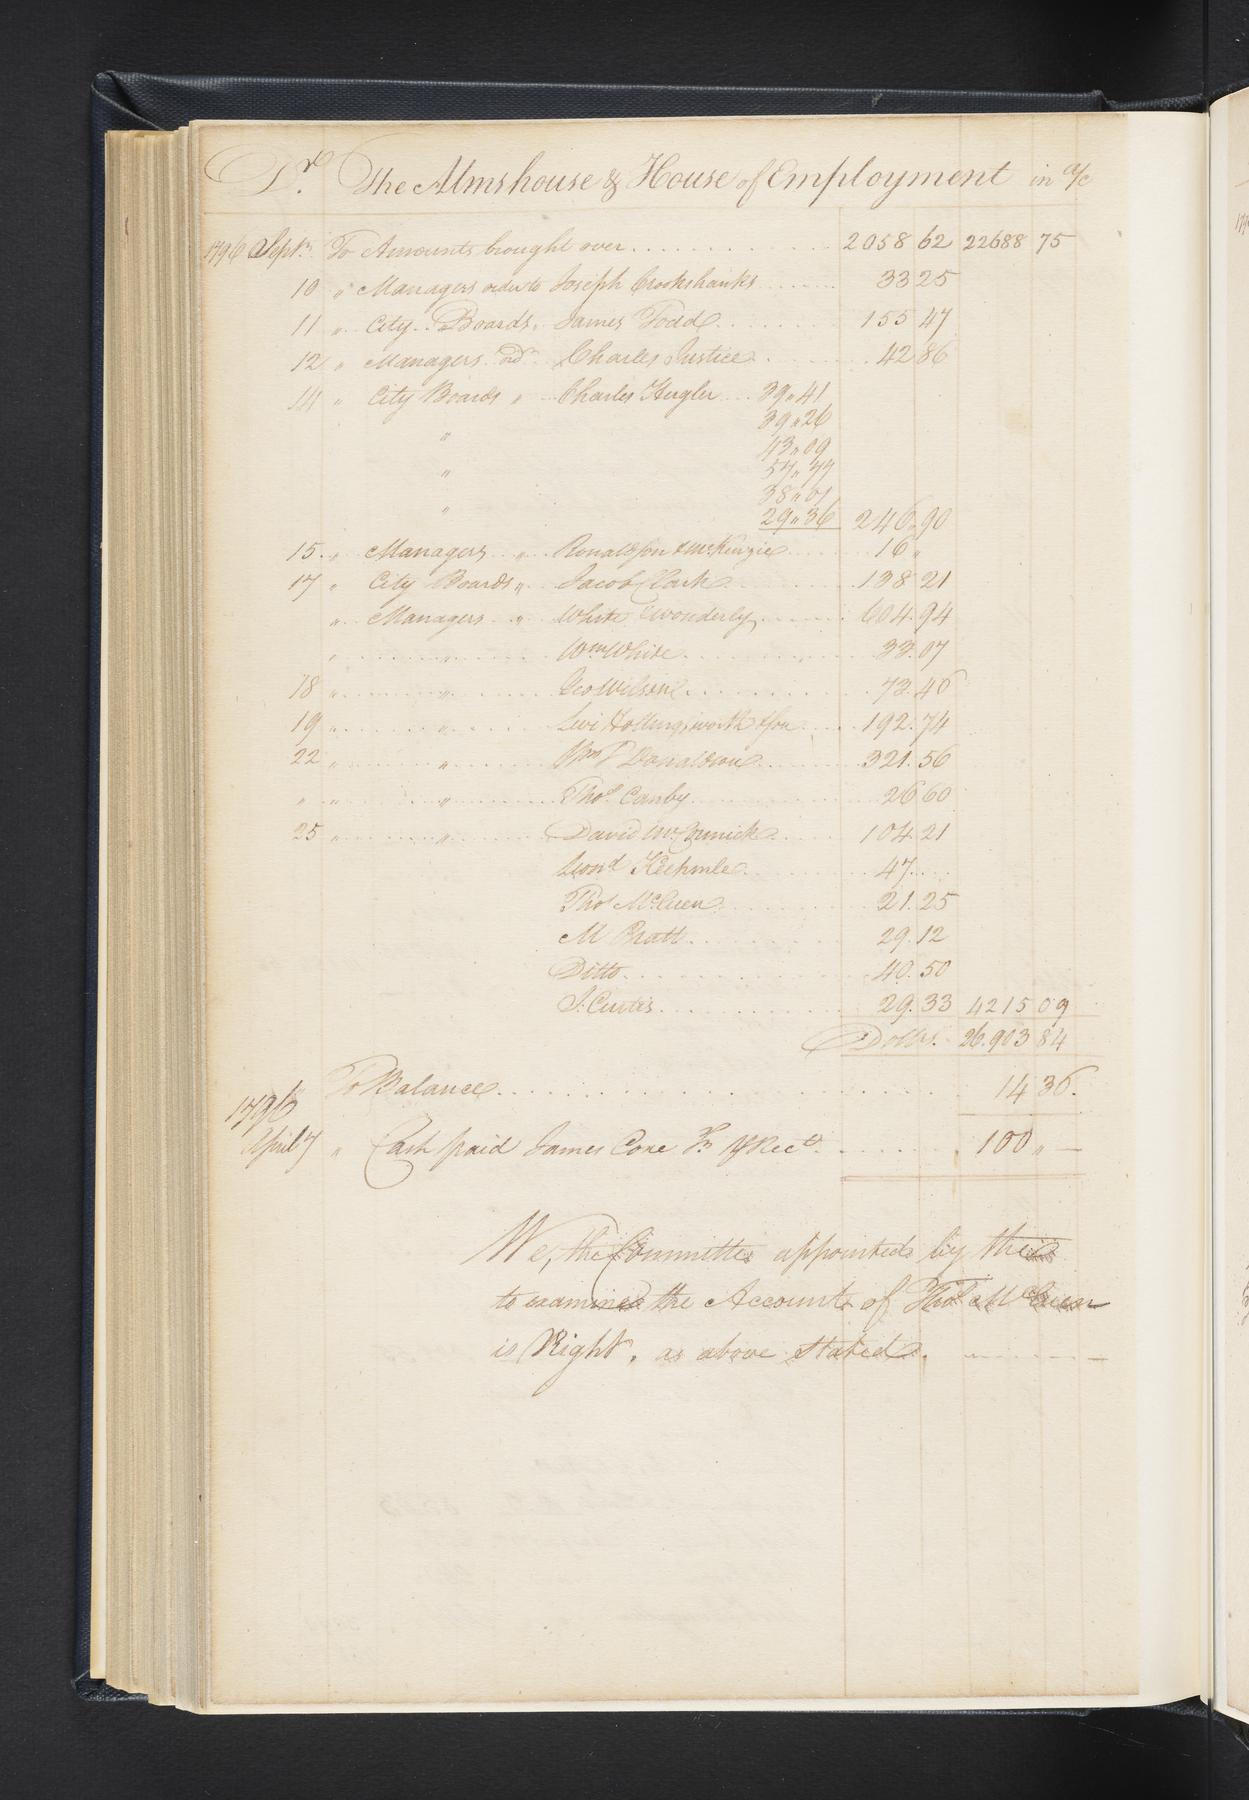 Dr. The Almshouse & House of Employment in a/c
1796 Septr. To Amounts brought over 2058 62 22688 75
10 " Managers order to Joseph Crookshanks 33 25
11 " City Boards " James Todd 155 47
12 " Managers ord Charles Justice 42 86
14 " City Boards " Charles Hugler 39 " 41
39 " 26
" 43 " 09
" 57 " 77
38 " 01
" 29 " 36 246 " 90
15 " Managers " Ronaldson & McKenzie 16 "
17 " City Boards " Jacob Clark 138 21
" Managers " White & Wonderly 604 94
" " Wm White 33 07
18 " " Geo Wilson 73 46
19 " " Levi Hollingsworth & Son 192 74
22 " " Wm P Donaldson 321 56
" " " Thos. Canby 26 60
25 " " David McCormick 104 21
Leond Keehmle 47
Thos McEuen 21 25
M Pratt 29 12
Ditto 40 50
J. Curtis 29 33 4215 09
Dolls. 26.903 84
To Balance 14 36.
1796
April 7 " Cash paid James Coxe Fr Rect. 100 " —
We, the Committee appointed by the
to examine the Accounts of Thos McEuen
is Right, as above Stated.